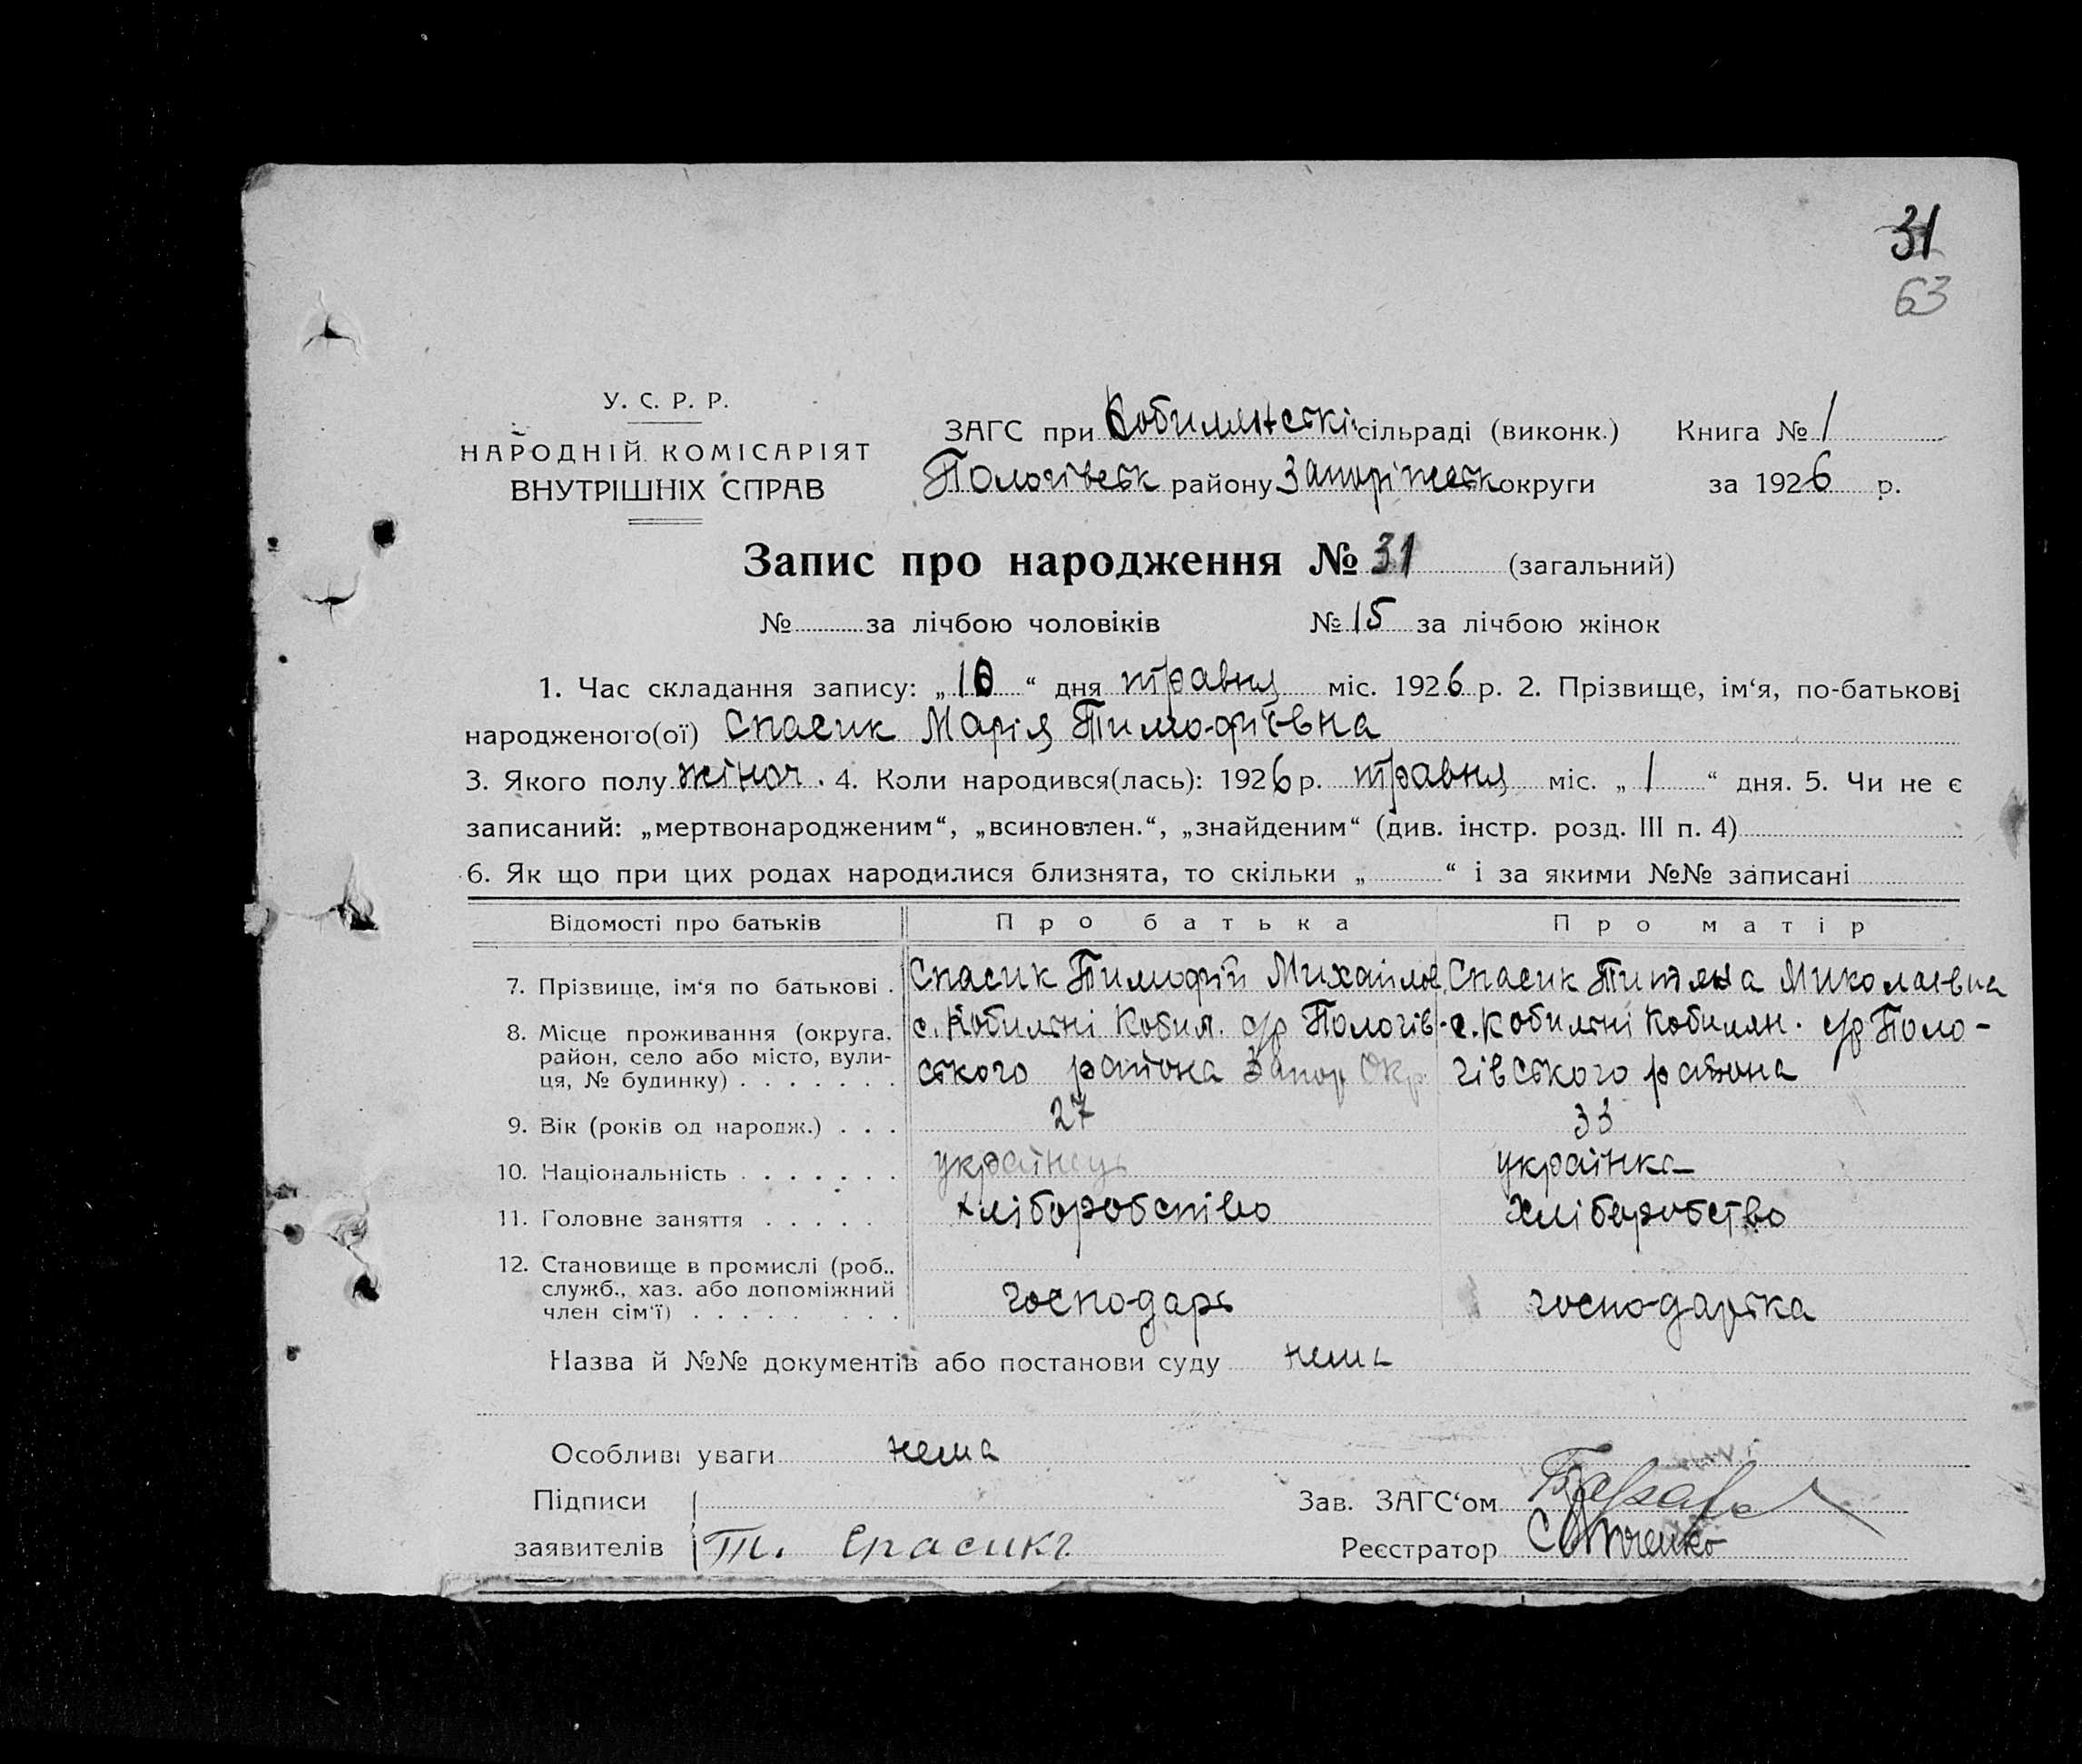 31
63
У. С. Р. Р.
НАРОДНІЙ КОМІСАРІЯТ
ВНУТРІШНІХ СПРАВ
ЗАГС при Кобилянській сільраді (виконк.) Книга № 1
Пологівськ району Запоріжськ округи за 1926 р.
Запис про народження № 31 (загальний)
№ за лічбою чоловіків № 15 за лічбою жінок
1. Час складання запису: „10“ дня травня міс. 1926 р. 2. Прізвище, ім‘я, по-батькові
народженого(ої) Спасик Марія Тимофіївна
3. Якого полу жіноч. 4. Коли народився(лась): 1926 р. травня міс. „1“ дня. 5. Чи не є
записаний: „мертвонародженим“, „всиновлен.“, „знайденим“ (див. інстр. розд. III п. 4)
6. Як що при цих родах народилися близнята, то скільки „ “ і за якими №№ записані
Відомості про батьків Про батька Про матір
7. Прізвище, ім‘я по батькові . Спасик Тимофій Михайлов. Спасик Титяна Миколаівна
8. Місце проживання (округа, с. Кобильні Кобил. с/р Пологів- с. Кобильні Кобилян. с/р Поло-
район, село або місто, вули-
ця, № будинку) . . . . . . . ського района Запор Окр. гівського района
9. Вік (років од народж.) . . . 27 33
10. Національність . . . . . . . українець українка
11. Головне заняття . . . . . хліборобство хліборобство
12. Становище в промислі (роб..
служб., хаз. або допоміжний
член сім‘ї) . . . . . . . . . господарь господарька
Назва й №№ документів або постанови суду нема
Особливі уваги нема
Підписи Зав. ЗАГС‘ом
заявителів Т. Спасик Реєстратор